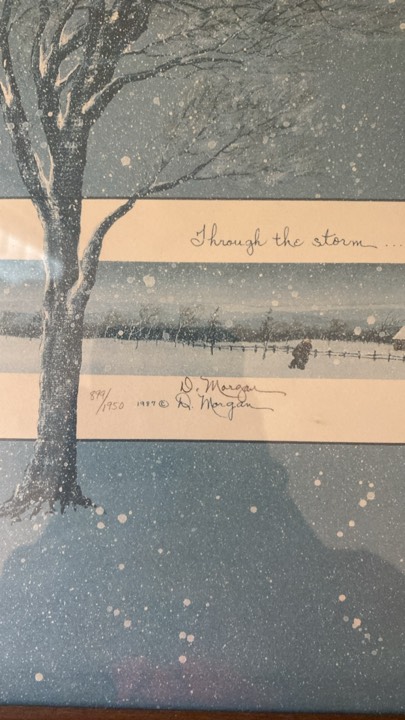 Through the storm ...
D. Morgan
849/1950 1987 © D. Morgan